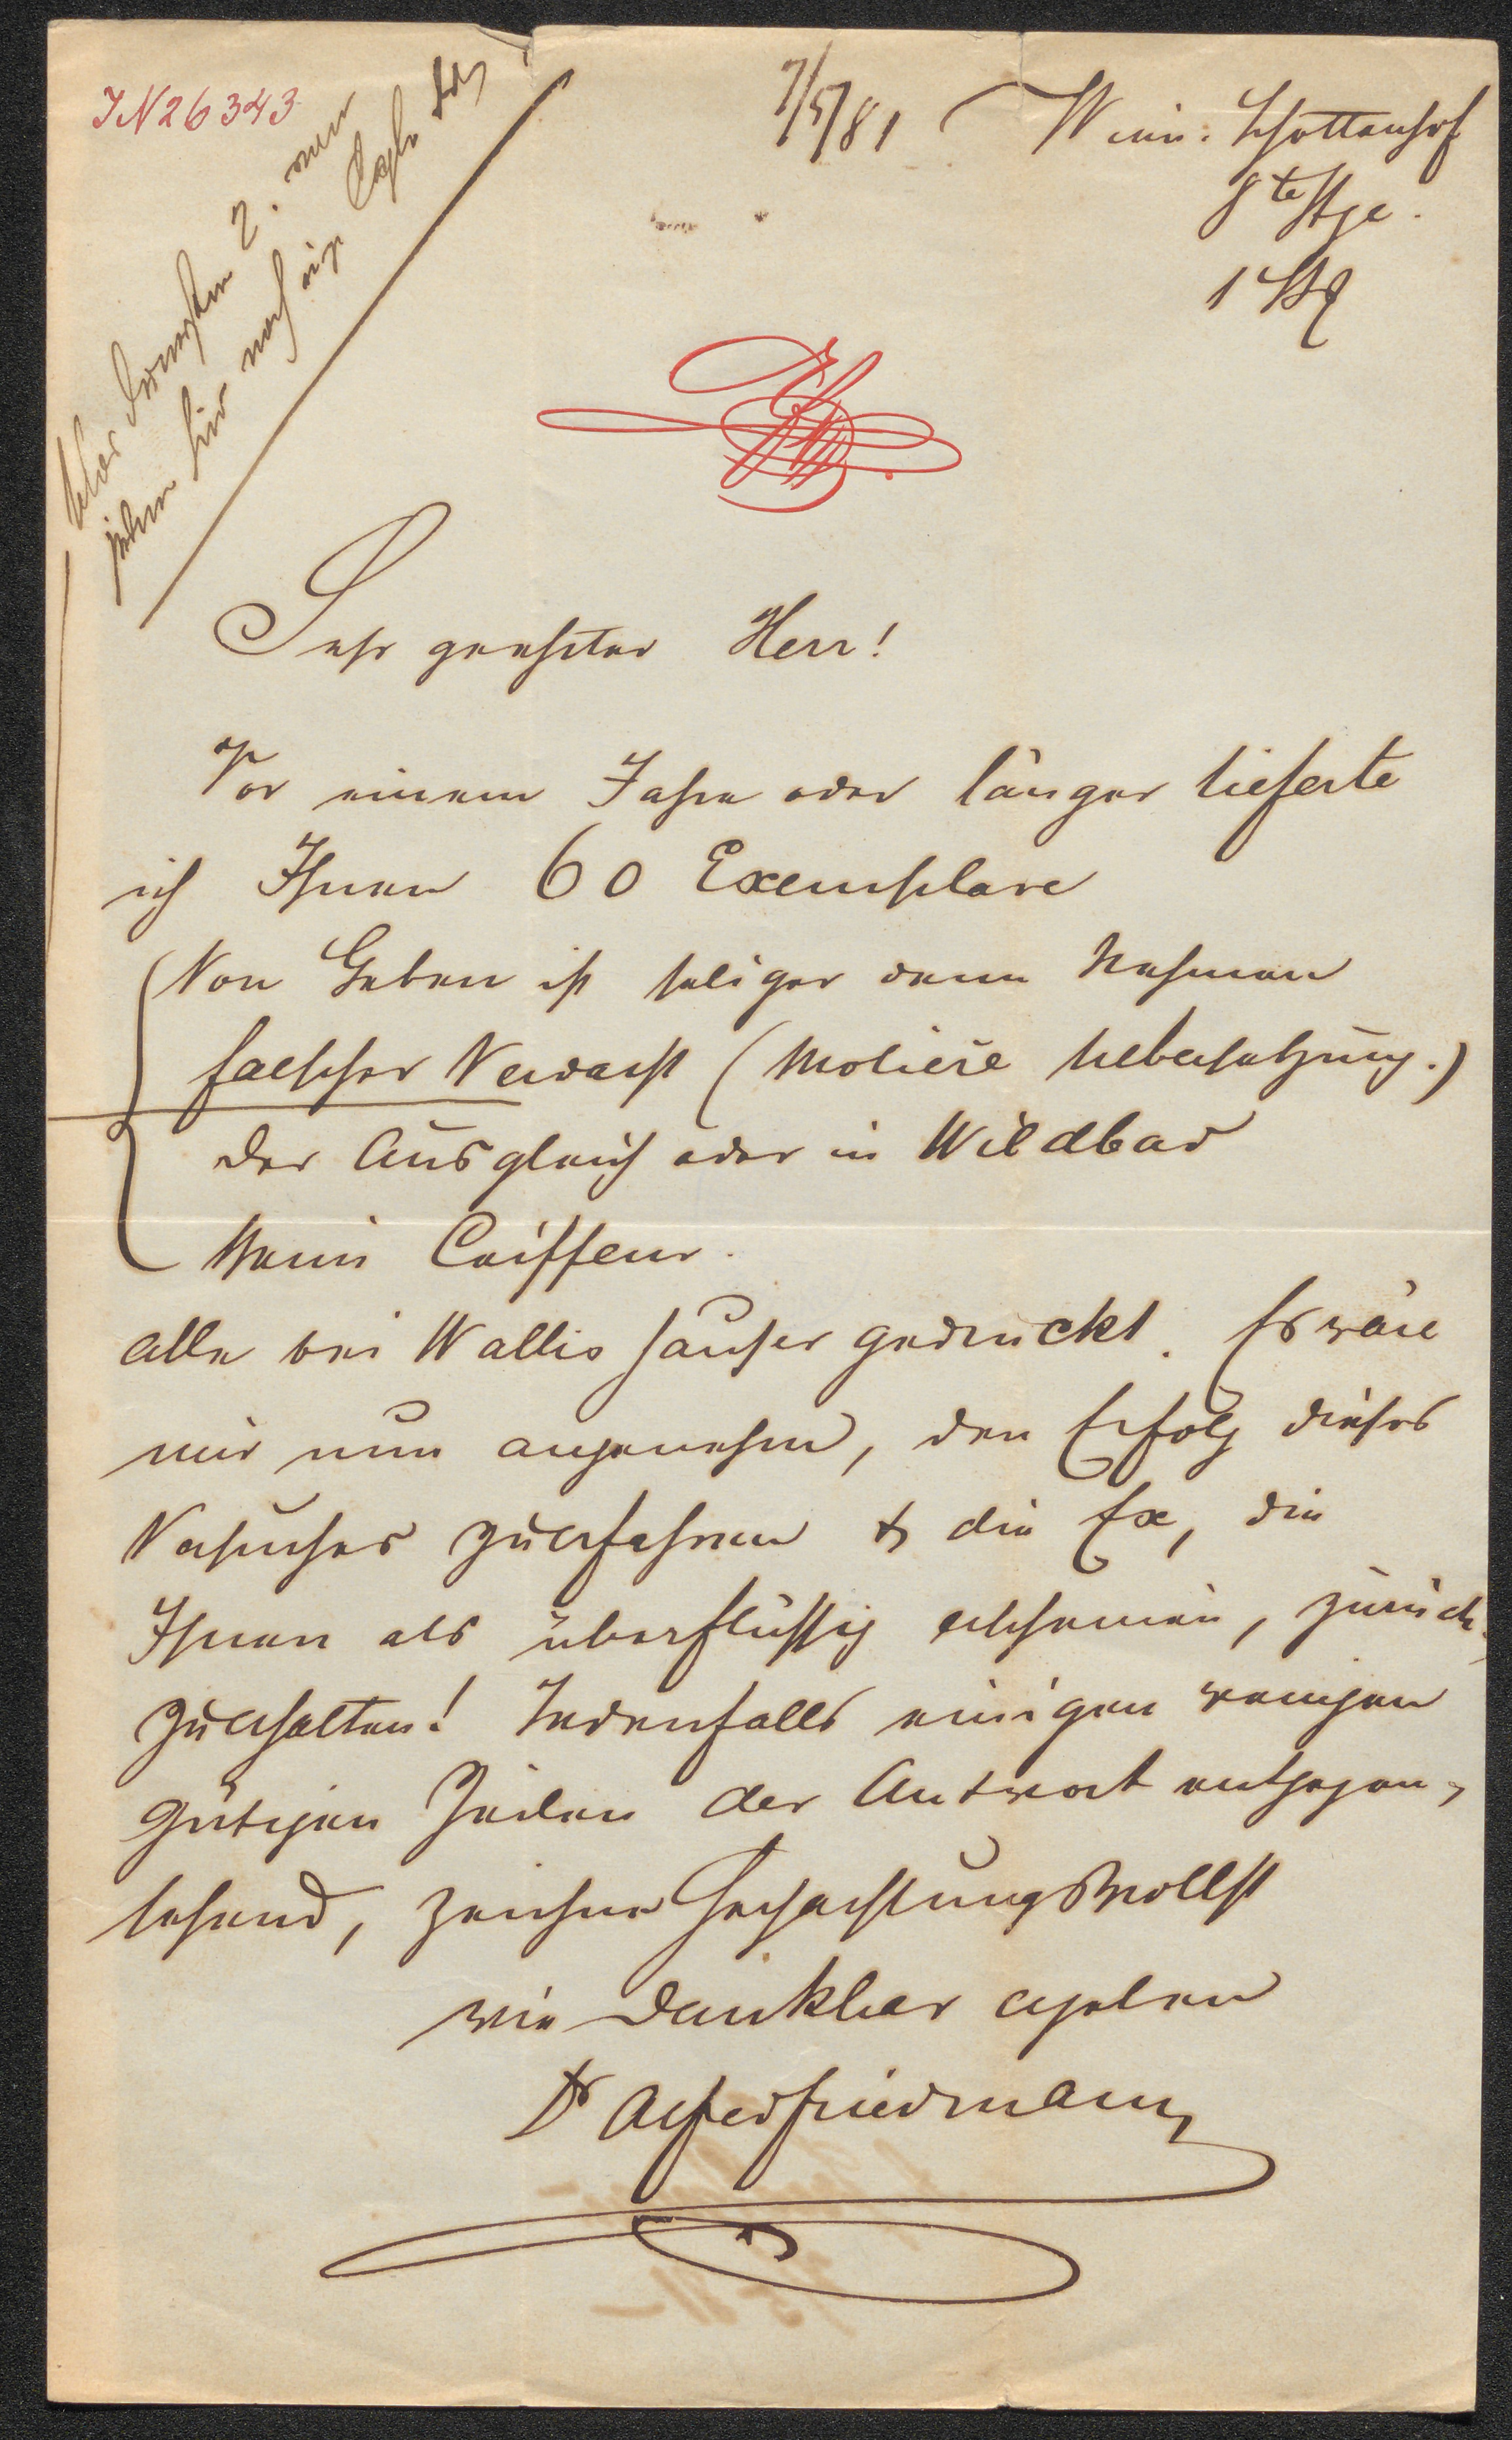 IN 26343
7/5/81 Wien: Schottenhof
8te Stge.
1 Stk
Sehr geehrter Herr!
Vor einem Jahre oder länger lieferte
ich Ihnen 60 Exemplare
Von Geben ist seliger denn Nehmen
falscher Verdacht (Moliere Uebersetzung.)
der Ausgleich oder in Wildbad
Coiffeur.
alle bei Wallishausser gedruckt. Es wäre
mir nun angenehm, den Erfolg dieses
Versuches zu erfahren & die Ex, die
Ihnen als überflüssig erscheinen, zurück
zu erhalten! Jedenfalls einigen wenigen
gütigen Zeilen der Antwort entgegen-
sehend, zeichne Hochachtungsvollst
wie dankbar ergeben
Dr Alfred Friedmann